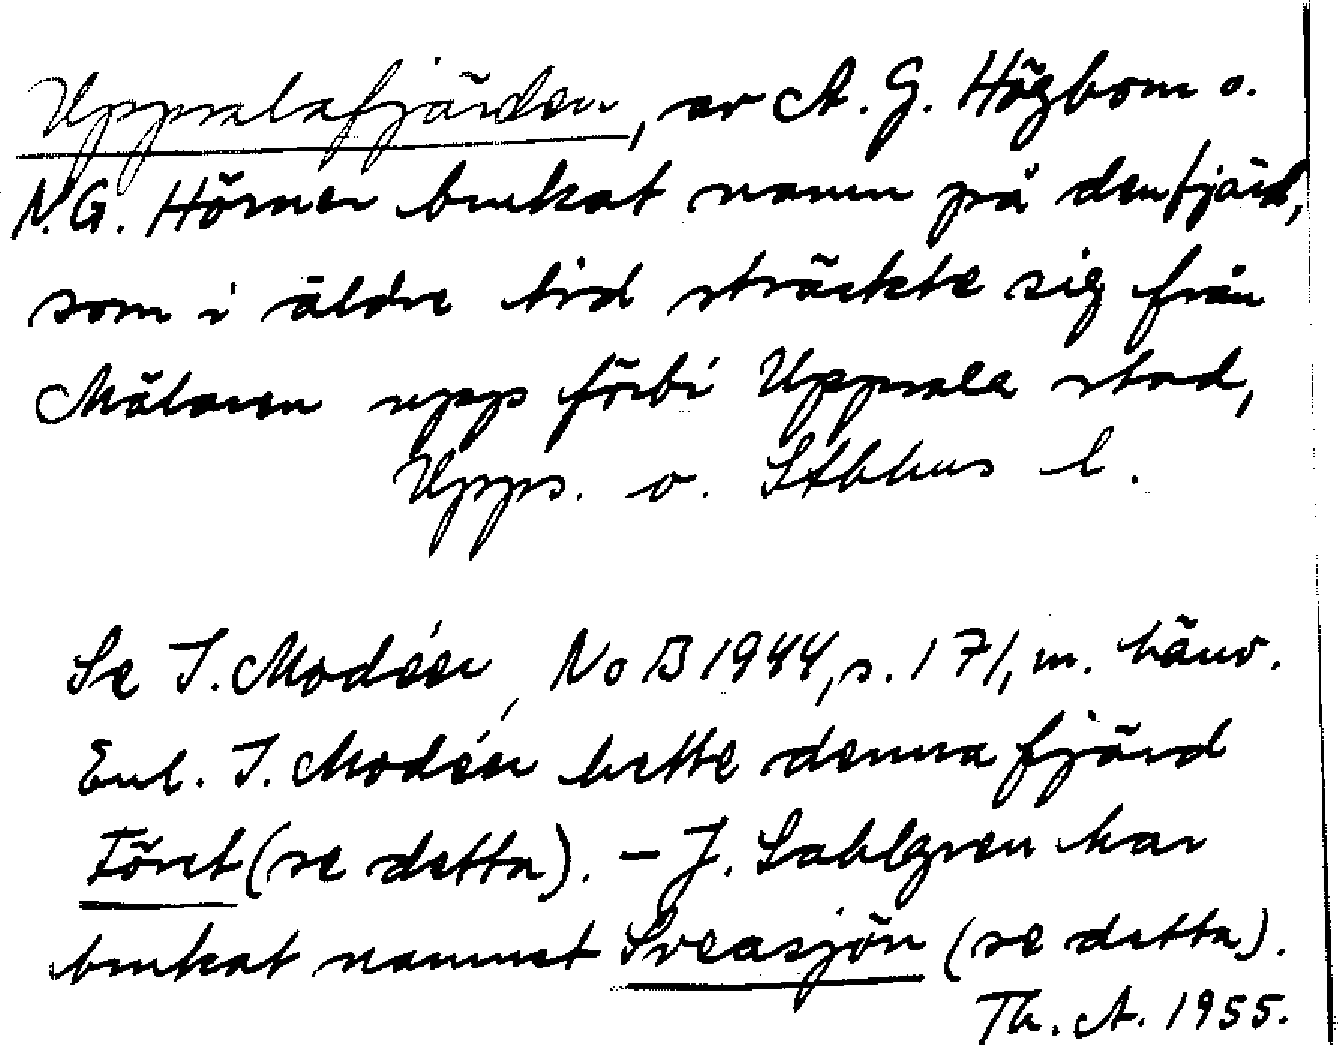 Uppsalafjärden, av A. G. Högbom o.
N.G. Hörner brukat namn på den fjärd,
som i äldre tid sträckte sig från
Mälaren upp förbi Uppsala stad,
Upps. o. Sthlms l.
Se I. Modéer, NoB 1944, s. 171, m. hänv.
Enl. I. Modéer hette denna fjärd
Föret (se detta). – J. Sahlgren har
brukat namnet Sveasjön (se detta).
Th. A. 1955.